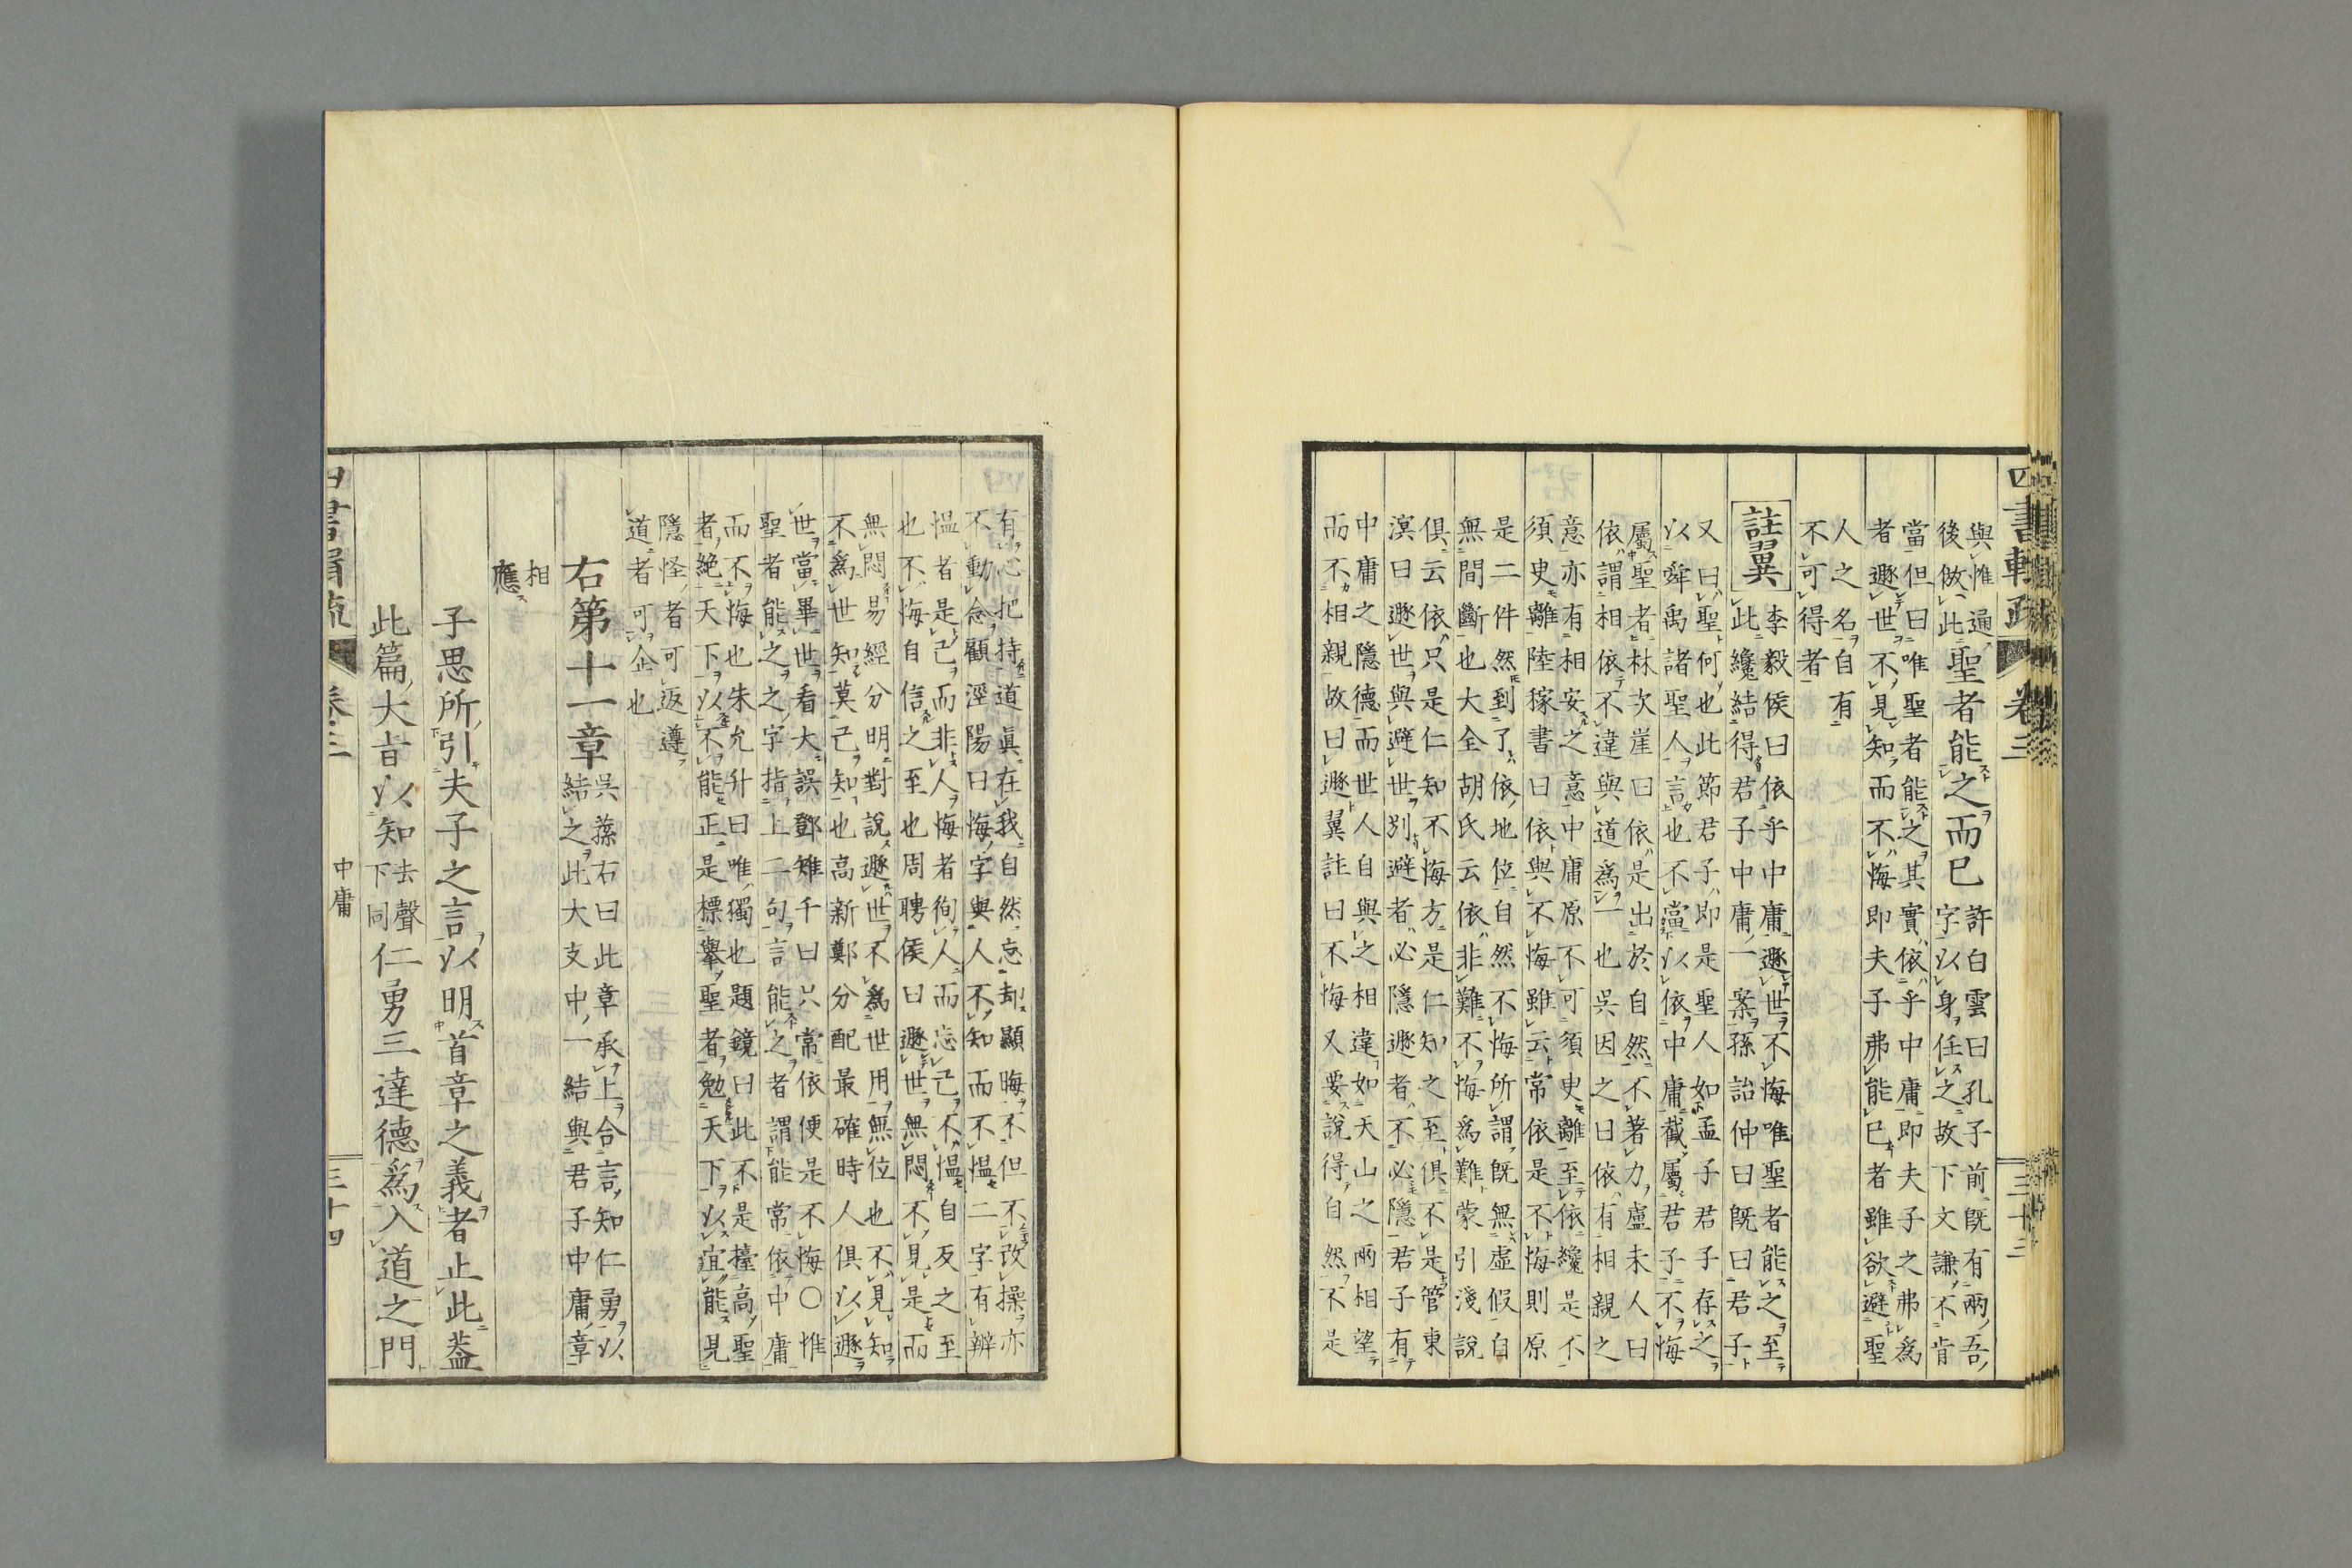 與惟通聖者能之而已許白雲曰孔子前既有兩吾
後倣此字以身任之故下文謙不肯
當但曰唯聖者能之其實依乎中庸即夫子之弗為
者遯世不見知而不悔即夫子弗能已者雖欲避聖
人之名自有
不可得者
註翼李毅侯曰依乎中庸遯世不悔唯聖者能之至
此纔結得君子中庸一案孫詒仲曰既曰君子
又曰聖何也此節君子即是聖人如孟子君子存之
以舜禹諸聖人言也不當以依中庸截屬君子不悔
屬聖者林次崖曰依是出於自然不著力盧未人曰
依謂相依不違與道為一也吳因之曰依有相親之
意亦有相安之意中庸原不可須臾離至依纔是不
須臾離陸稼書曰依與不悔雖云常依是不悔則原
是二件然到了依地位自然不悔所謂既無虛假自
無間斷也大全胡氏云依非難不悔為難蒙引淺說
俱云依只是仁知不悔方是仁知之至俱不是管東
溟曰遯世與避世別避者必隱遯者不必隱君子有
中庸之隱德而世人自與之相違如天山之兩相望
而不相親故曰遯翼註曰不悔又要說得自然不是
四書𩋾疏 卷三 三十三
有心把持道眞在我自然忘却顯晦不但不改操亦
不動念顧涇陽曰悔字與人不知而不慍二字有辨
慍者是己而非人悔者徇人而忘己不慍自反之至
也不悔自信之至也周聘侯曰遯世無悶不見是而
無悶易經分明對說遯世不為世用無位也不見知
不為世知莫己知也高新鄭分配最確時人俱以遯
世當畢世看大誤鄧雉千曰只常依便是不悔○惟
聖者能之之字指上二句言能之者謂能常依中庸
而不悔也朱允升曰唯獨也題鏡曰此不是擡高聖
者絕天下以不能正是標舉聖者勉天下以宜能見
隱怪者可返遵
道者可企也
右第十一章吳蓀右曰此章承上合言知仁勇以
結之此大支中一結與君子中庸章
相
應
子思所引夫子之言以明首章之義者止此蓋
此篇大旨以知去聲下同仁勇三達德為入道之門
卷三 中庸 三十四